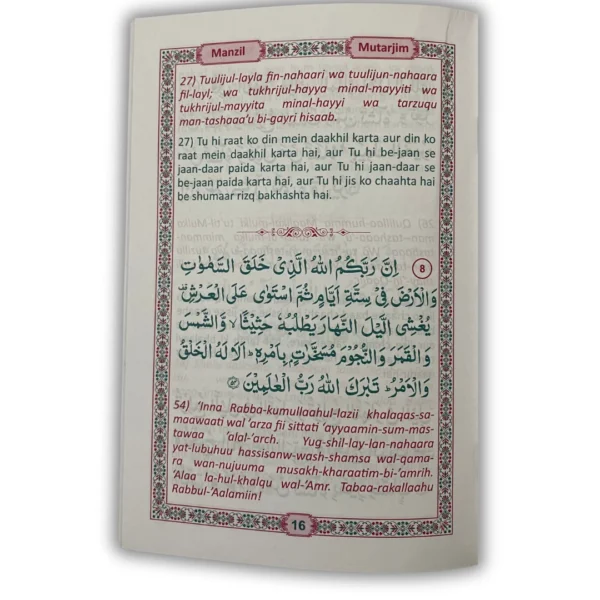 Manzil
Mutarjim
27) Tuulijul-layla fin-nahaari wa tuulijun-nahaara
fil-layl; wa tukhrijul-hayya minal-mayyiti wa
tukhrijul-mayyita minal-hayyi wa tarzuqu
man-tashaaa'u bi-gayri hisaab.
27) Tu hi raat ko din mein daakhil karta aur din ko
raat mein daakhil karta hai, aur Tu hi be-jaan se
jaan-daar paida karta hai, aur Tu hi jaan-daar se
be-jaan paida karta hai, aur Tu hi jis ko chaahta hai
be shumaar rizq bakhashta hai.
8 اِنَّ رَبَّكُمُ اللهُ الَّذِیْ خَلَقَ السَّمٰوٰتِ
وَالْاَرْضَ فِیْ سِتَّةِ اَیَّامٍ ثُمَّ اسْتَوٰی عَلَی الْعَرْشِ
یُغْشِی الَّیْلَ النَّهَارَ یَطْلُبُهٗ حَثِیْثًا ۙ وَّالشَّمْسَ
وَالْقَمَرَ وَالنُّجُوْمَ مُسَخَّرٰتٍۭ بِاَمْرِهٖ ؕ اَلَا لَهُ الْخَلْقُ
وَالْاَمْرُ ؕ تَبٰرَكَ اللهُ رَبُّ الْعٰلَمِیْنَ
54) 'Inna Rabba-kumullaahul-lazii khalaqas-sa-
maawaati wal 'arza fii sittati 'ayyaamin-sum-mas-
tawaa 'alal-'arch. Yug-shil-lay-lan-nahaara
yat-lubuhuu hassisanw-wash-shamsa wal-qama-
ra wan-nujuuma musakh-kharaatim-bi-'amrih.
'Alaa la-hul-khalqu wal-'Amr. Tabaa-rakallaahu
Rabbul-'Aalamiin!
16